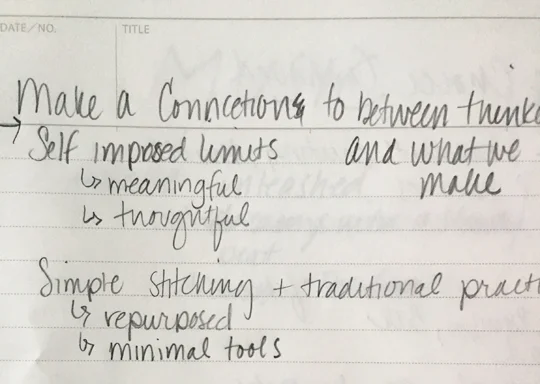 DATE/NO.
TITLE
Make a Conncetions to between thinke
→ Self imposed limits and what we
↳ meaningful make
↳ thoughtful
Simple stitching + traditional practi
↳ repurposed
↳ minimal tools